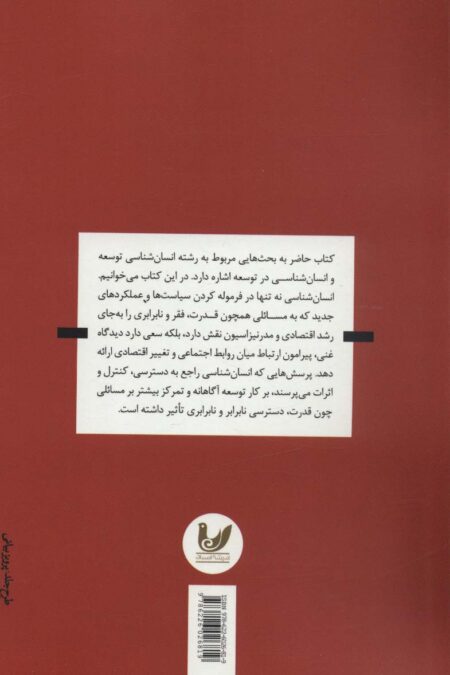 کتاب حاضر به بحث‌هایی مربوط به رشته انسان‌شناسی توسعه
و انسان‌شناسـی در توسعه اشاره دارد. در این کتاب می‌خوانیم.
انسان‌شناسی نه تنها در فرموله کردن سیاست‌ها و عملکردهای
جدید که به مسـائلی همچون قـدرت، فقر و نابرابری را به‌جای
رشد اقتصادی و مدرنیزاسیون نقش دارد، بلکه سعی دارد دیدگاه
غنی، پیرامون ارتباط میان روابط اجتماعی و تغییر اقتصادی ارائه
دهد. پرسش‌هایی که انسان‌شناسی راجع به دسترسی، کنترل و
اثرات می‌پرسند، بر کار توسعه آگاهانه و تمرکز بیشتر بر مسائلی
چون قدرت، دسترسی نابرابر و نابرابری تأثیر داشته است.
اندیشه احسان
9786226026819
طرح جلد: پرویز بیانی